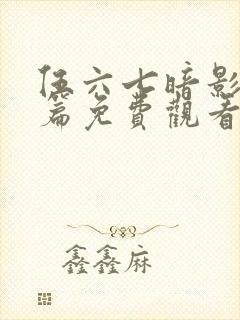 伍六七暗影
篇免費觀看
鑫鑫麻